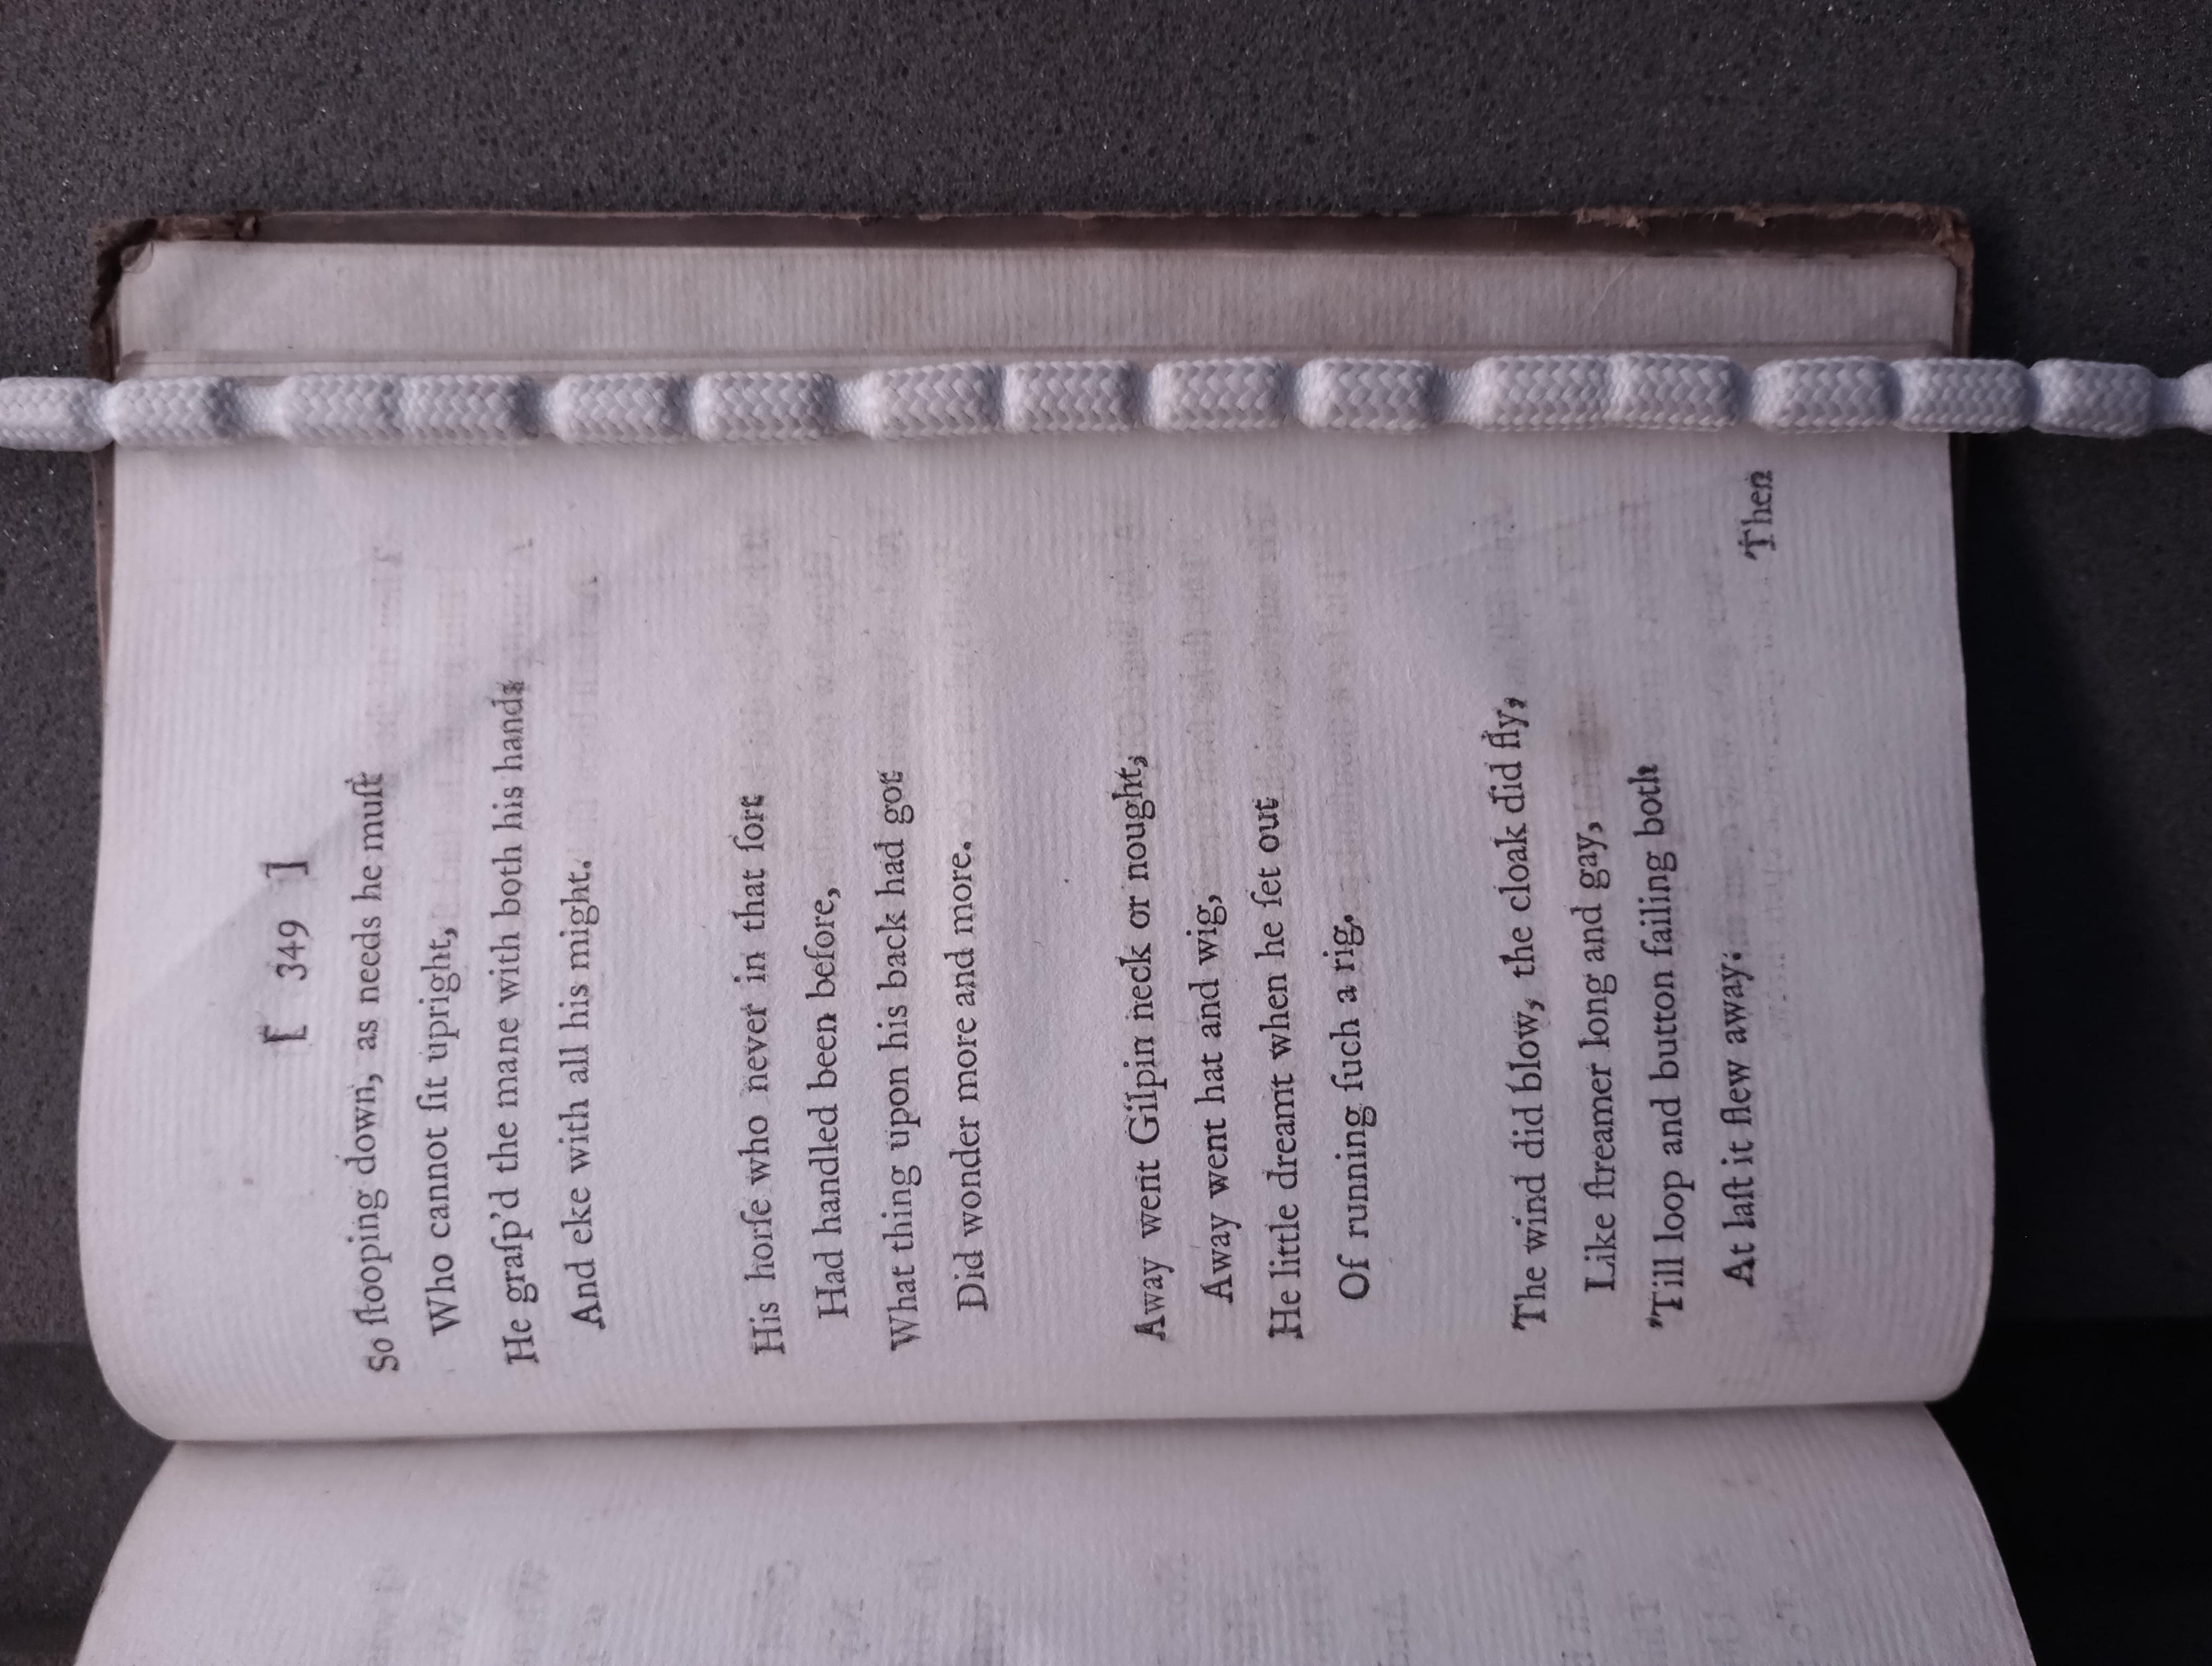 [ 349 ]
So ſtooping down, as needs he muſt
Who cannot ſit upright,
He graſp'd the mane with both his hands
And eke with all his might.
His horſe who never in that ſort
Had handled been before,
What thing upon his back had got
Did wonder more and more.
Away went Gilpin neck or nought,
Away went hat and wig,
He little dreamt when he ſet out
Of running ſuch a rig.
The wind did blow, the cloak did fly,
Like ſtreamer long and gay,
'Till loop and button failing both
At laſt it flew away.
Then